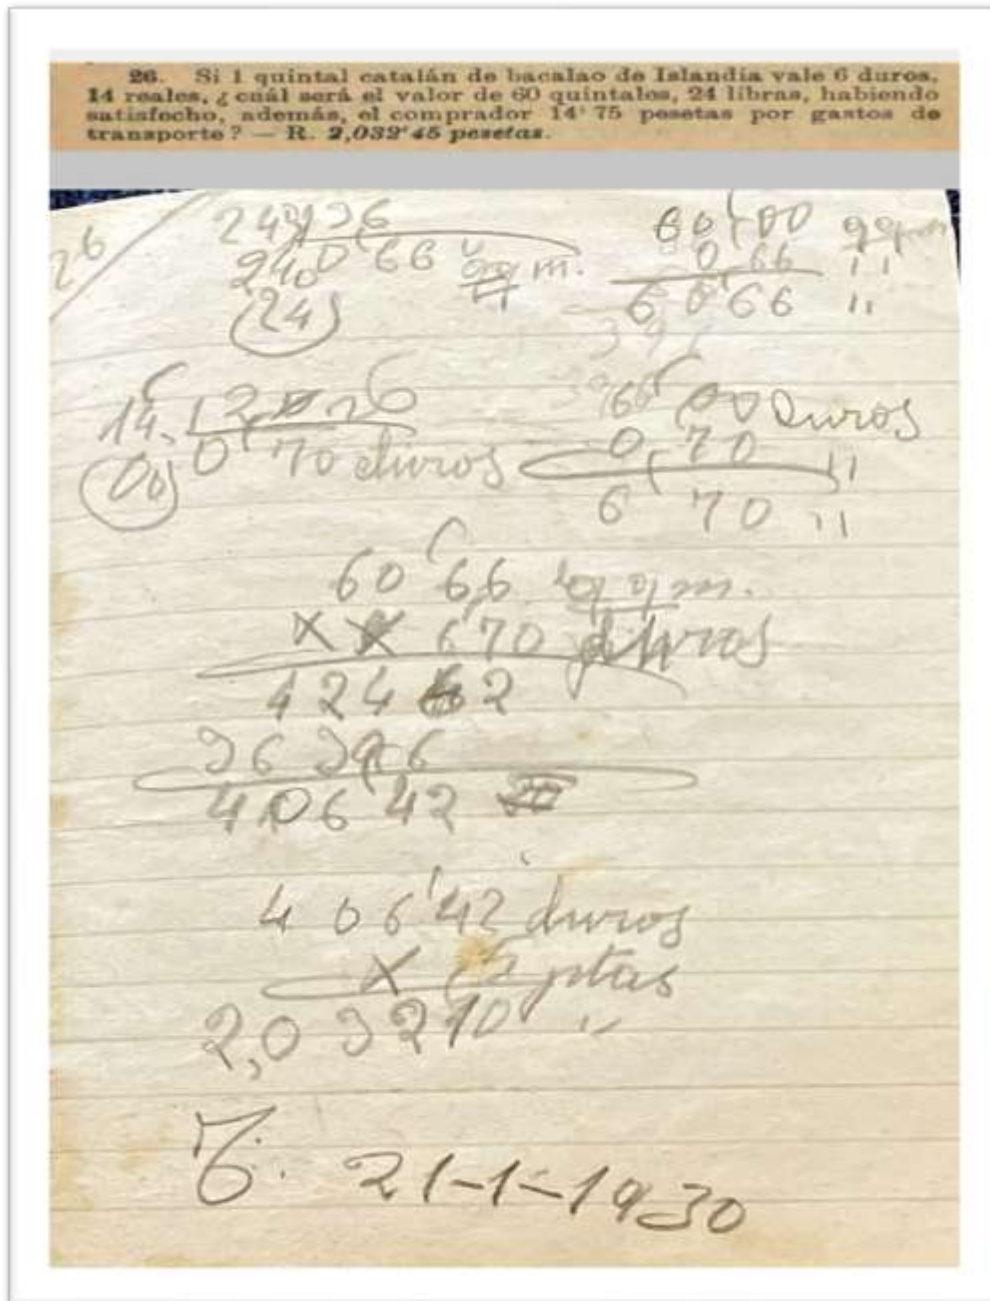 26. Si 1 quintal catalán de bacalao de Islandia vale 6 duros,
14 reales, ¿cuál será el valor de 60 quintales, 24 libras, habiendo
satisfecho, además, el comprador 14'75 pesetas por gastos de
transporte? — R. 2,032'45 pesetas.
26
60'00 qqm
240 0 66 qq m.
0 66 "
(24)
6 0'66 "
14
66 00 duros
(00) 0'70 duros
0,70 "
6 70 "
60'66 qqm.
X 6'70 duros
424 62
363 96
406 42
4 0 6'42 duros
X 5 ptas
2,0 3 2 10 "
21-1-1930